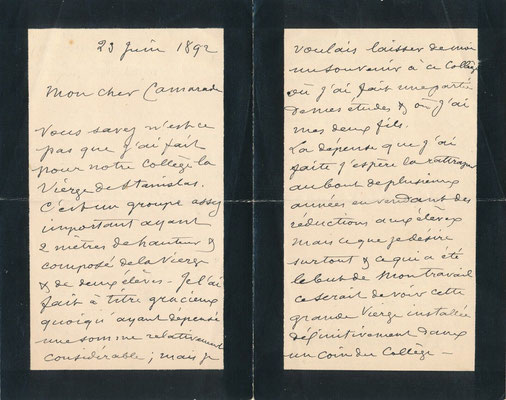 23 Juin 1892
Mon cher Camarade
Vous savez n'est ce
pas que j'ai fait
pour notre Collège la
Vierge de Stanislas.
C'est un groupe assez
important ayant
2 mètres de hauteur &
composé de la Vierge
& de deux élèves. Je l'ai
fait à titre gracieux
quoiqu'ayant dépensé
une somme relativement
considérable ; mais je
voulais laisser de moi
un souvenir à ce Collège
où j'ai fait une partie
de mes études & où j'ai
mes deux fils.
La dépense que j'ai
faite j'espère la rattraper
au bout de plusieurs
années en vendant des
réductions aux élèves
mais ce que je désire
surtout & ce qui a été
le but de mon travail
ce serait de voir cette
grande Vierge installée
définitivement dans
un coin du Collège -